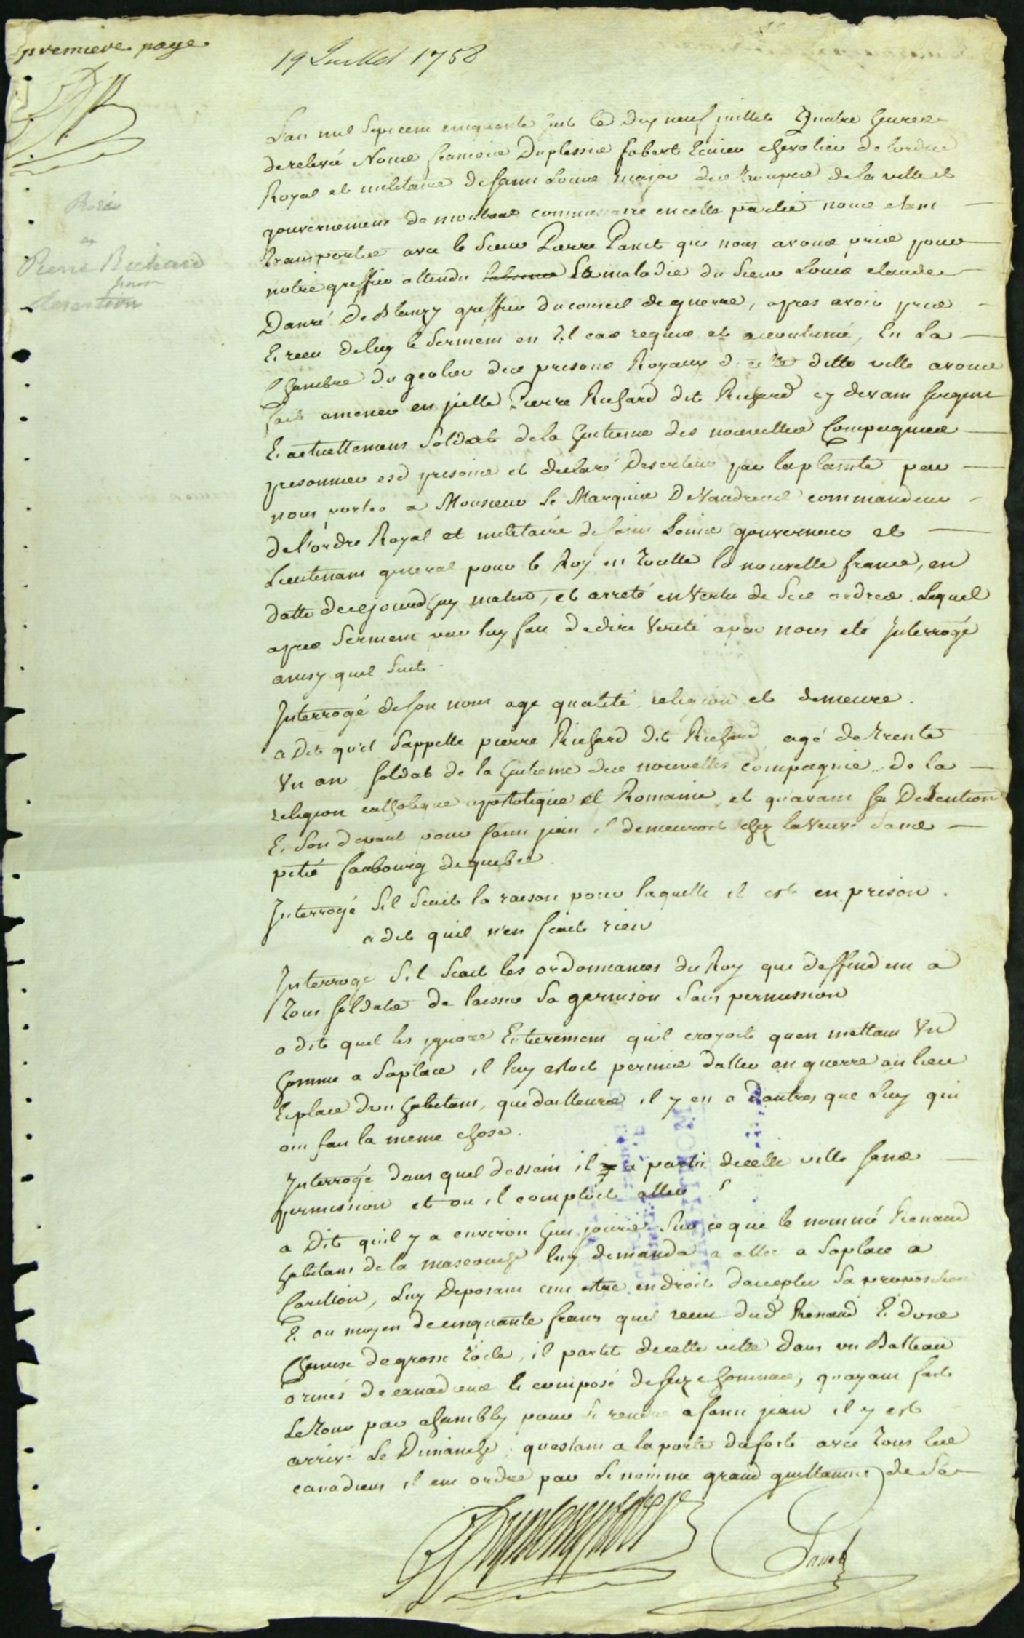 premiere page
19 Juillet 1758
Lan mil sept cent cinquante huit le dix neuf juillet Quatre heures
de relevé Nous francois Duplessis fabert Ecuier chevalier de lordre
Royal et militaire de saint Louis major des troupes de la ville et
gouvernement de montreal commissaire en cette partie nous etant
transportés avec le sieur Pierre Panet que nous avons pris pour
notre greffier attendu labsence La maladie du sieur Louis claude
Danré De Blanzy greffier du conseil de guerre, apres avoir pris
Et receu de luy le serment en tel cas requis et accoutumé, En La
Chambre du geolier des prisons Royaux de cette ditte ville avons
fait amener en jcelle Pierre Richard dit Richard cy devant
Et actuellement soldat de la huitieme des nouvelles Compagnies
prisonnier esd prisons et declaré Deserteur par la plainte par
nous portée a Monsieur le Marquis De Vaudreuil commandeur
de l'ordre Royal et militaire de saint Louis gouverneur et
Lieutenant general pour le Roy en toutte la nouvelle france, en
datte de cejourd'huy matin, et arreté en Vertu de ses ordres. Lequel
apres serment par luy fait de dire Verité avons nous eté Interrogé
ainsy quil suit
Interrogé de son nom age qualité, religion et demeure.
a Dit qu'il s'appelle pierre Richard dit Richard agé de trente
Un an soldat de la huitieme des nouvelles compagnie de la
religion catholique apostolique et Romaine et quavant sa Detention
Et son depart pour saint jean il demeuroit chez la Veuve
petit faubourg de quebec.
Interrogé s'il scait la raison pour laquelle il est en prison.
a dit quil n'en scait rien
Interrogé s'il scait les ordonnances du Roy qui deffendent a
tous soldats de laisser sa garnison sans permission
a dit quil les ignore Entierement quil croyoit quen mettant Un
homme a sa place il luy estoit permis d'aller en guerre au lieu
Et place d'un habitant, que dailleurs il y en a dautres que luy qui
ont fait la meme chose.
Interrogé dans quel dessein il a parti de cette ville sans
permission et ou il comptoit aller
a Dit qu'il y a environ huit jours sur ce que le nommé Renaud
habitant de la mascouche luy demanda a aller a sa place a
Carillon, Luy Deposant cru estre en droit daccepter sa proposition
Et au moyen de cinquante francs quil receu dud Renaud Et dune
Chemise de grosse toile, il partit de cette ville Dans un Batteau
armés de canadiens Et composé de seize hommes, quayant fait
Le tour par chambly pour se rendre a saint jean il y est
arrivé le Dimanche, questant a la porte du fort avec tous les
canadiens il eut ordre par le nommé grand guillaume de sa
Panet
Procès
Pierre Richard
pour
desertion